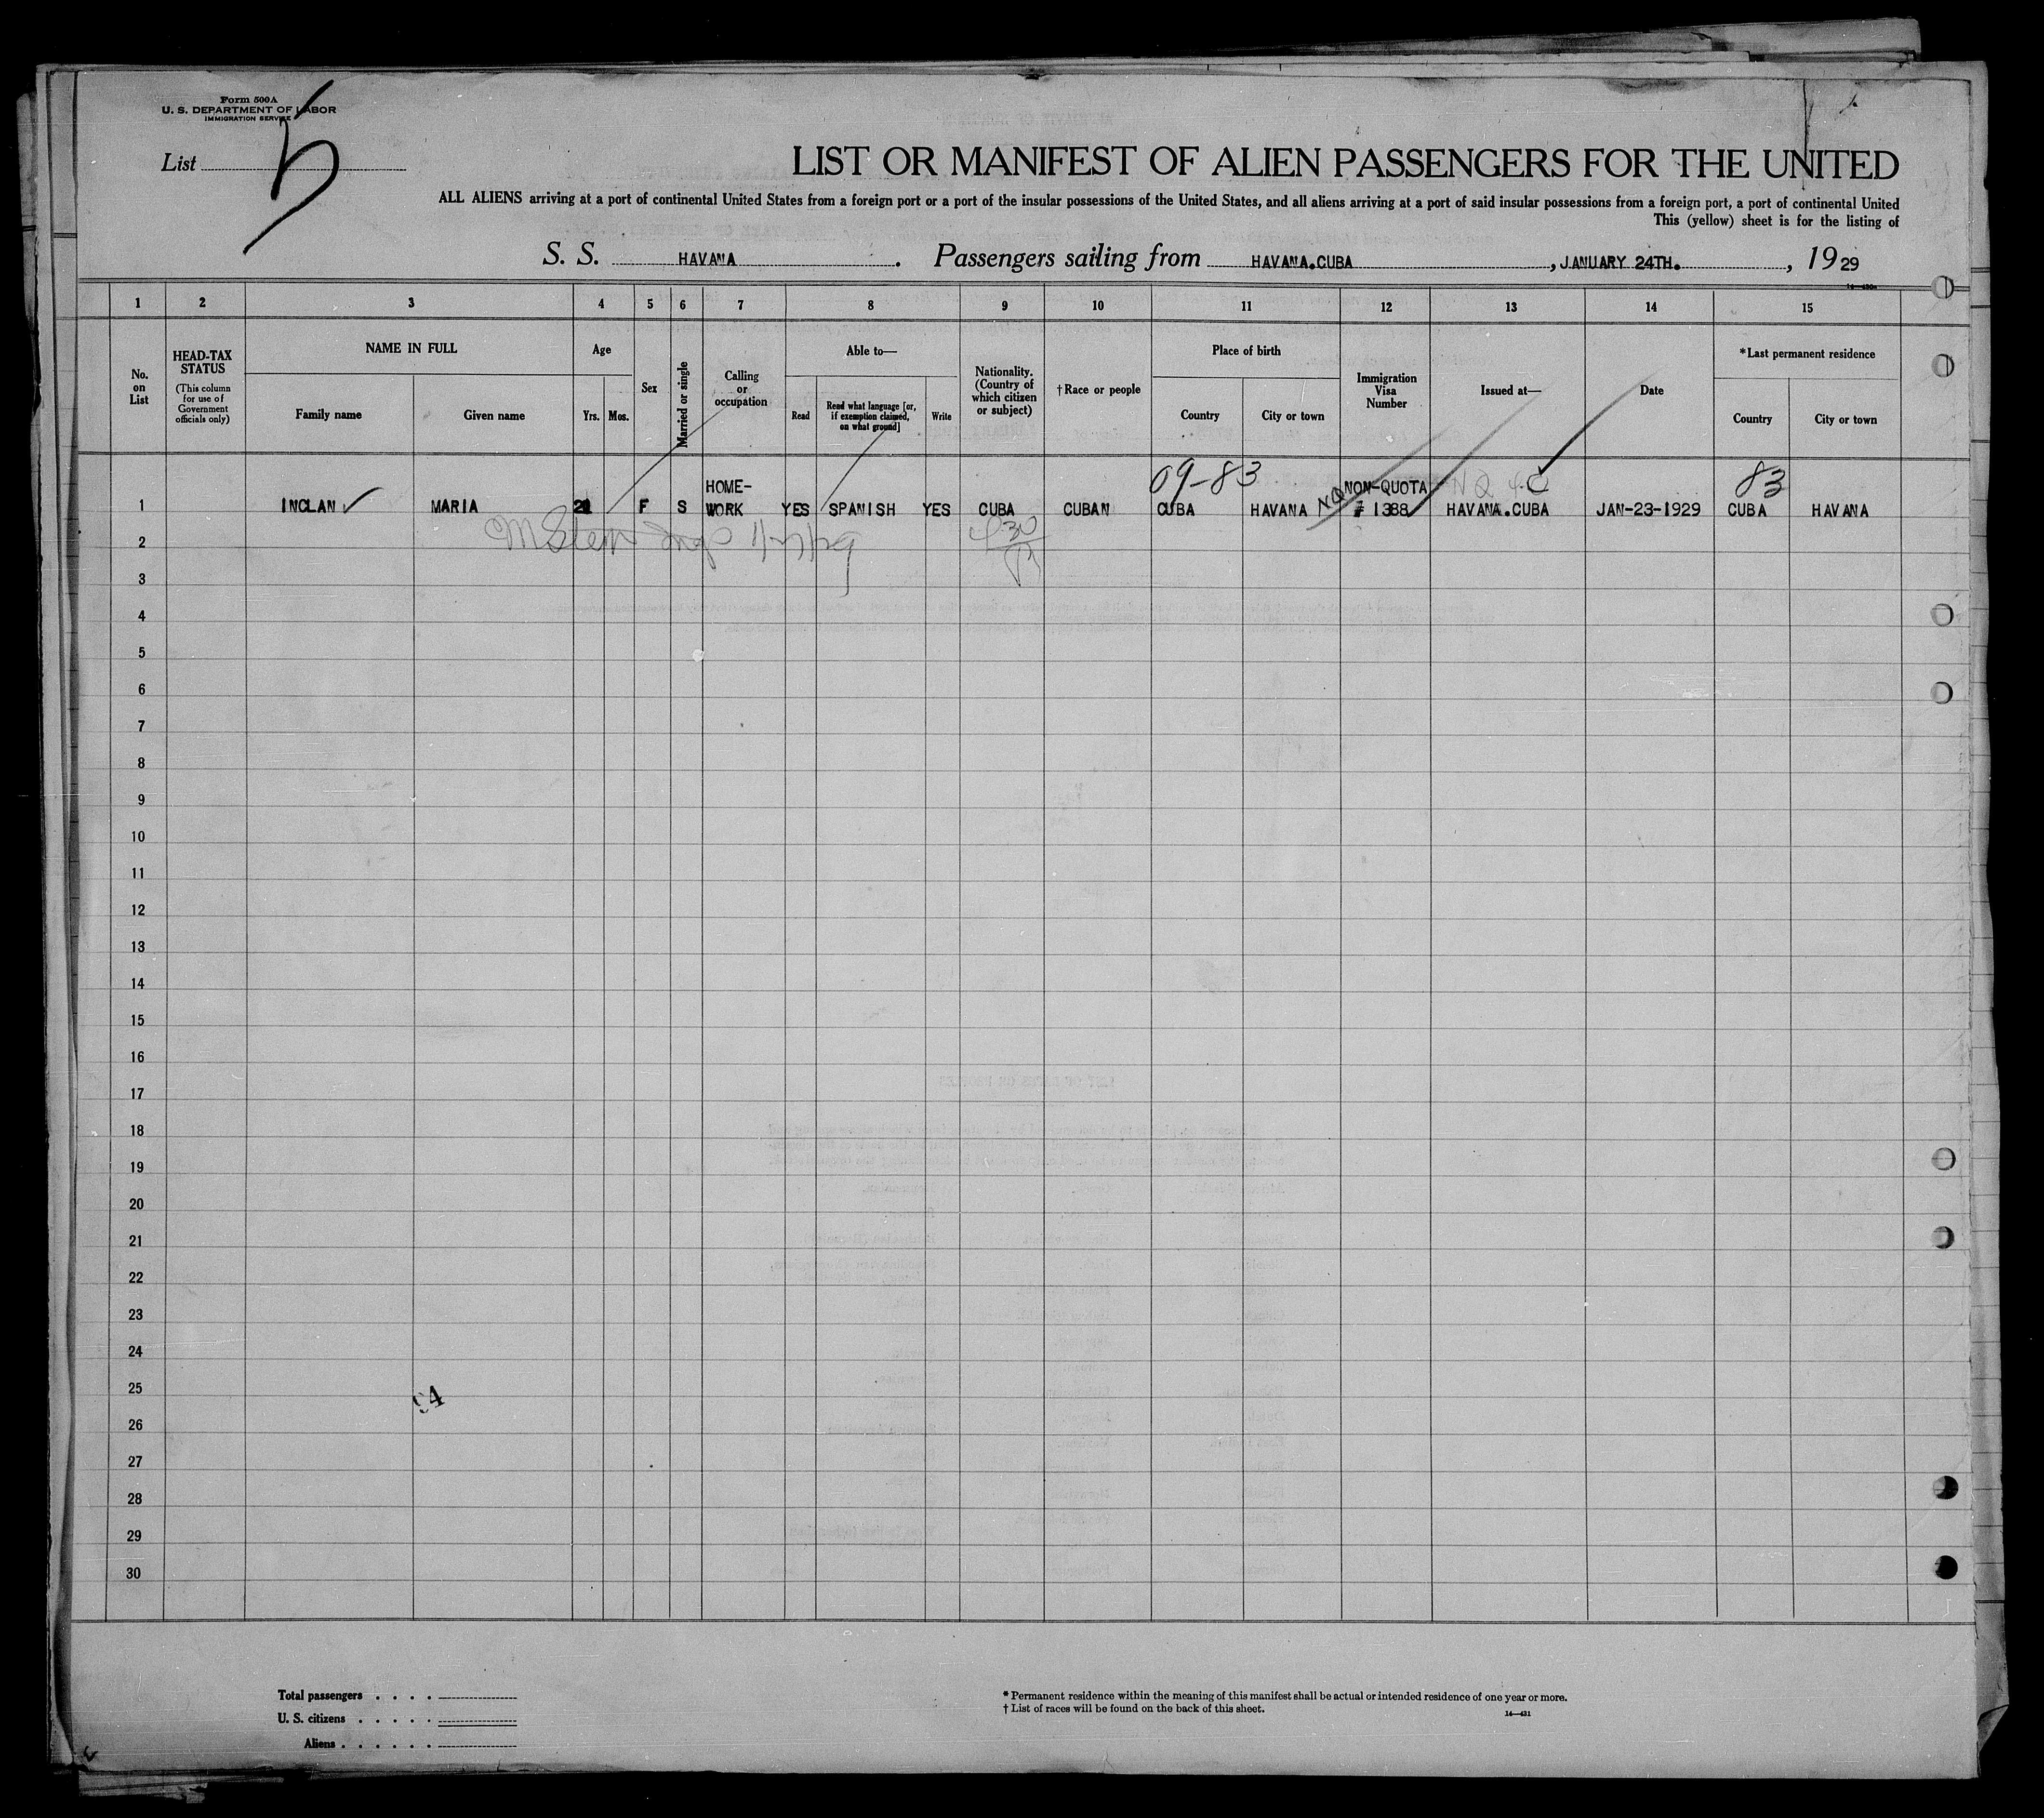 Form 500A
U. S. DEPARTMENT OF LABOR
IMMIGRATION SERVICE
List 5
LIST OR MANIFEST OF ALIEN PASSENGERS FOR THE UNITED
ALL ALIENS arriving at a port of continental United States from a foreign port or a port of the insular possessions of the United States, and all aliens arriving at a port of said insular possessions from a foreign port, a port of continental United
This (yellow) sheet is for the listing of
S. S. HAVANA. Passengers sailing from HAVANA.CUBA, JANUARY 24TH., 1929
14—430a
1 2 3 4 5 6 7 8 9 10 11 12 13 14 15
No. on List
HEAD-TAX STATUS
(This column for use of Government officials only)
NAME IN FULL
Family name Given name
Age
Yrs. Mos.
Sex
Married or single
Calling or occupation
Able to—
Read
Read what language [or, if exemption claimed, on what ground]
Write
Nationality. (Country of which citizen or subject)
†Race or people
Place of birth
Country City or town
Immigration Visa Number
Issued at—
Date
*Last permanent residence
Country City or town
09-83 NQ 4-C 83
HOME- NON-QUOTA
1 INCLAN MARIA 21 F S WORK YES SPANISH YES CUBA CUBAN CUBA HAVANA NQ # 1388 HAVANA.CUBA JAN-23-1929 CUBA HAVANA
2
3
4
5
6
7
8
9
10
11
12
13
14
15
16
17
18
19
20
21
22
23
24
25
94
26
27
28
29
30
Total passengers . . . .
U. S. citizens . . . . .
Aliens . . . . . .
* Permanent residence within the meaning of this manifest shall be actual or intended residence of one year or more.
† List of races will be found on the back of this sheet.
14—431